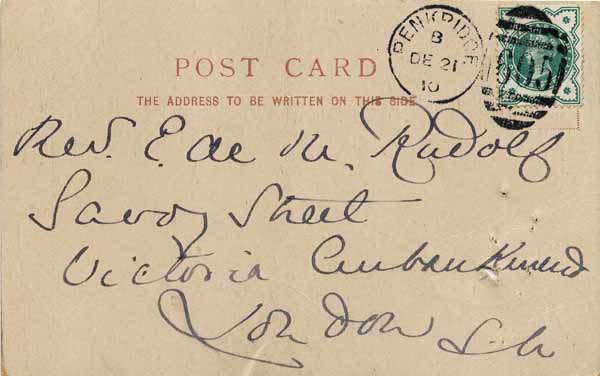 PENKRIDGE
B
DE 21
10
POST CARD
THE ADDRESS TO BE WRITTEN ON THIS SIDE
Rev. E. de M. Rudolf
Savoy Street
Victoria Embankment
London